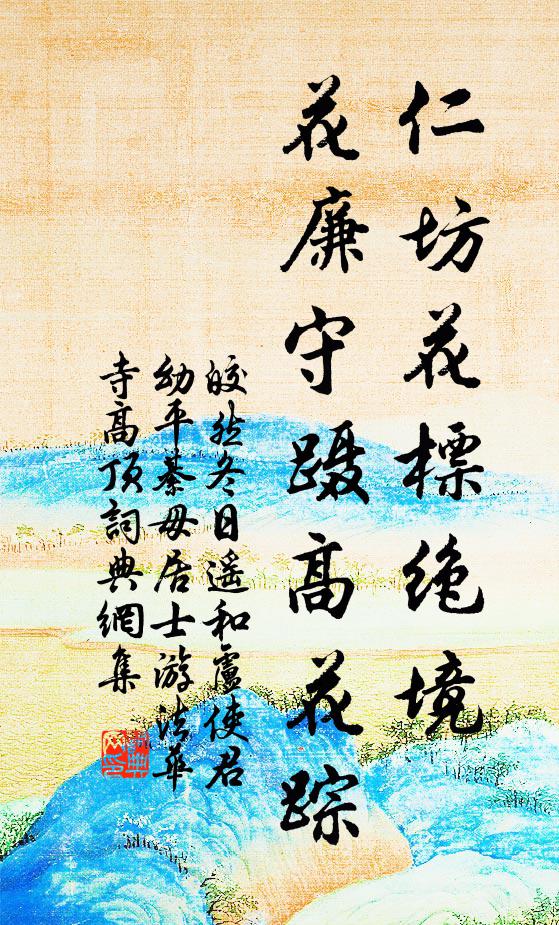 仁坊花標绝境
花廉守蹑高花踪
皎然冬日遥和盧使君
幼平綦毋居士游法華
寺高顶詞典網集